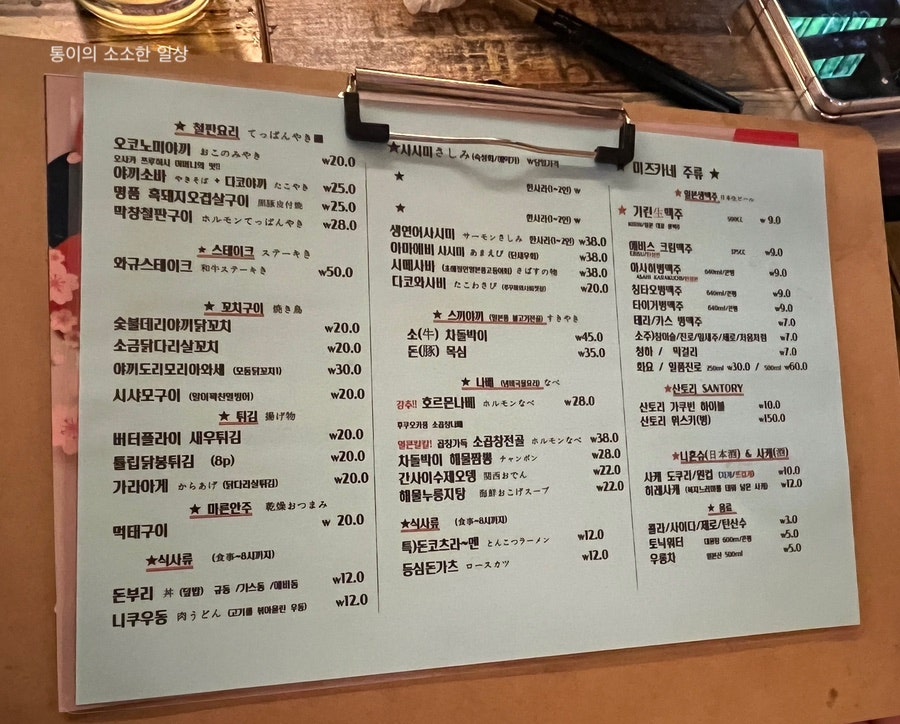 통이의 소소한 일상
★ 철판요리 てっぱんやき
오코노미야끼 おこのみやき ₩20.0
오사카 쯔루하시 어머니의 맛!!
야끼소바 やきそば + 다코야끼 たこやき ₩25.0
명품 흑돼지오겹살구이 黒豚皮付焼 ₩25.0
막창철판구이 ホルモンてっぱんやき ₩28.0
★ 스테이크 ステーキき
와규스테이크 和牛ステーキき ₩50.0
★ 꼬치구이 焼き鳥
숯불데리야끼닭꼬치 ₩20.0
소금닭다리살꼬치 ₩20.0
야끼도리모리아와세 (모둠닭꼬치) ₩30.0
시샤모구이 (알이꽉찬열빙어) ₩20.0
★ 튀김 揚げ物
버터플라이 새우튀김 ₩20.0
튤립닭봉튀김 (8p) ₩20.0
가라아게 からあげ (닭다리살튀김) ₩20.0
★ 마른안주 乾燥おつまみ
먹태구이 ₩ 20.0
★식사류 (食事~8시까지)
돈부리 丼 (덮밥) 규동 /가스동 /에비동 ₩12.0
니쿠우동 肉うどん (고기를 볶아올린 우동) ₩12.0
★사시미さしみ(숙성회/매이기) ₩당일가격
★ 한사라(1~2인) ₩
★ 한사라(1~2인) ₩
생연어사시미 サーモンさしみ 한사라(1~2인) ₩38.0
아마에비 사시미 あまえび (단새우회) ₩38.0
시메사바 (초에절인일본풍고등어회) さばすの物 ₩38.0
다코와사비 たこわさび ₩20.0
★ 스끼야끼 (일본풍 불고기전골) すきやき
소(牛) 차돌박이 ₩45.0
돈(豚) 목심 ₩35.0
★ 나베 (냄비국물요리) なべ
강추!! 호르몬나베 ホルモンなべ ₩28.0
후쿠오카풍 소곱창나베
얼큰칼칼! 곱창가득 소곱창전골 ホルモンなべ ₩38.0
차돌박이 해물짬뽕 チャンポン ₩28.0
간사이수제오뎅 関西おでん ₩22.0
해물누룽지탕 海鮮おこげスープ ₩22.0
★식사류 (食事~8시까지)
특)돈코츠라~멘 とんこつラーメン ₩12.0
등심돈가츠 ロースカツ ₩12.0
★ 미즈카네 주류 ★
★일본생맥주 日本生ビール
★ 기린生맥주 500CC ₩ 9.0
에비스 크림맥주 ₩9.0
아사히병맥주 640ml/큰병 ₩9.0
칭타오병맥주 640ml/큰병 ₩9.0
타이거병맥주 640ml/큰병 ₩9.0
테라/카스 병맥주 ₩7.0
소주)참이슬/진로/잎새주/새로/처음처럼 ₩7.0
청하 / 막걸리 ₩7.0
화요 / 일품진로 ₩30.0 / 500ml ₩60.0
★산토리 SANTORY
산토리 가쿠빈 하이볼 ₩10.0
산토리 위스키(병) ₩150.0
★니혼슈(日本酒) & 사케(酒)
사케 도쿠리/원컵 (차게/뜨겁게) ₩10.0
히레사케 (복지느러미를 태워 넣은 사케) ₩12.0
★ 음료
콜라/사이다/제로/탄산수 ₩3.0
토닉워터 대용량 600m/큰병 ₩5.0
우롱차 일본산 500ml ₩5.0